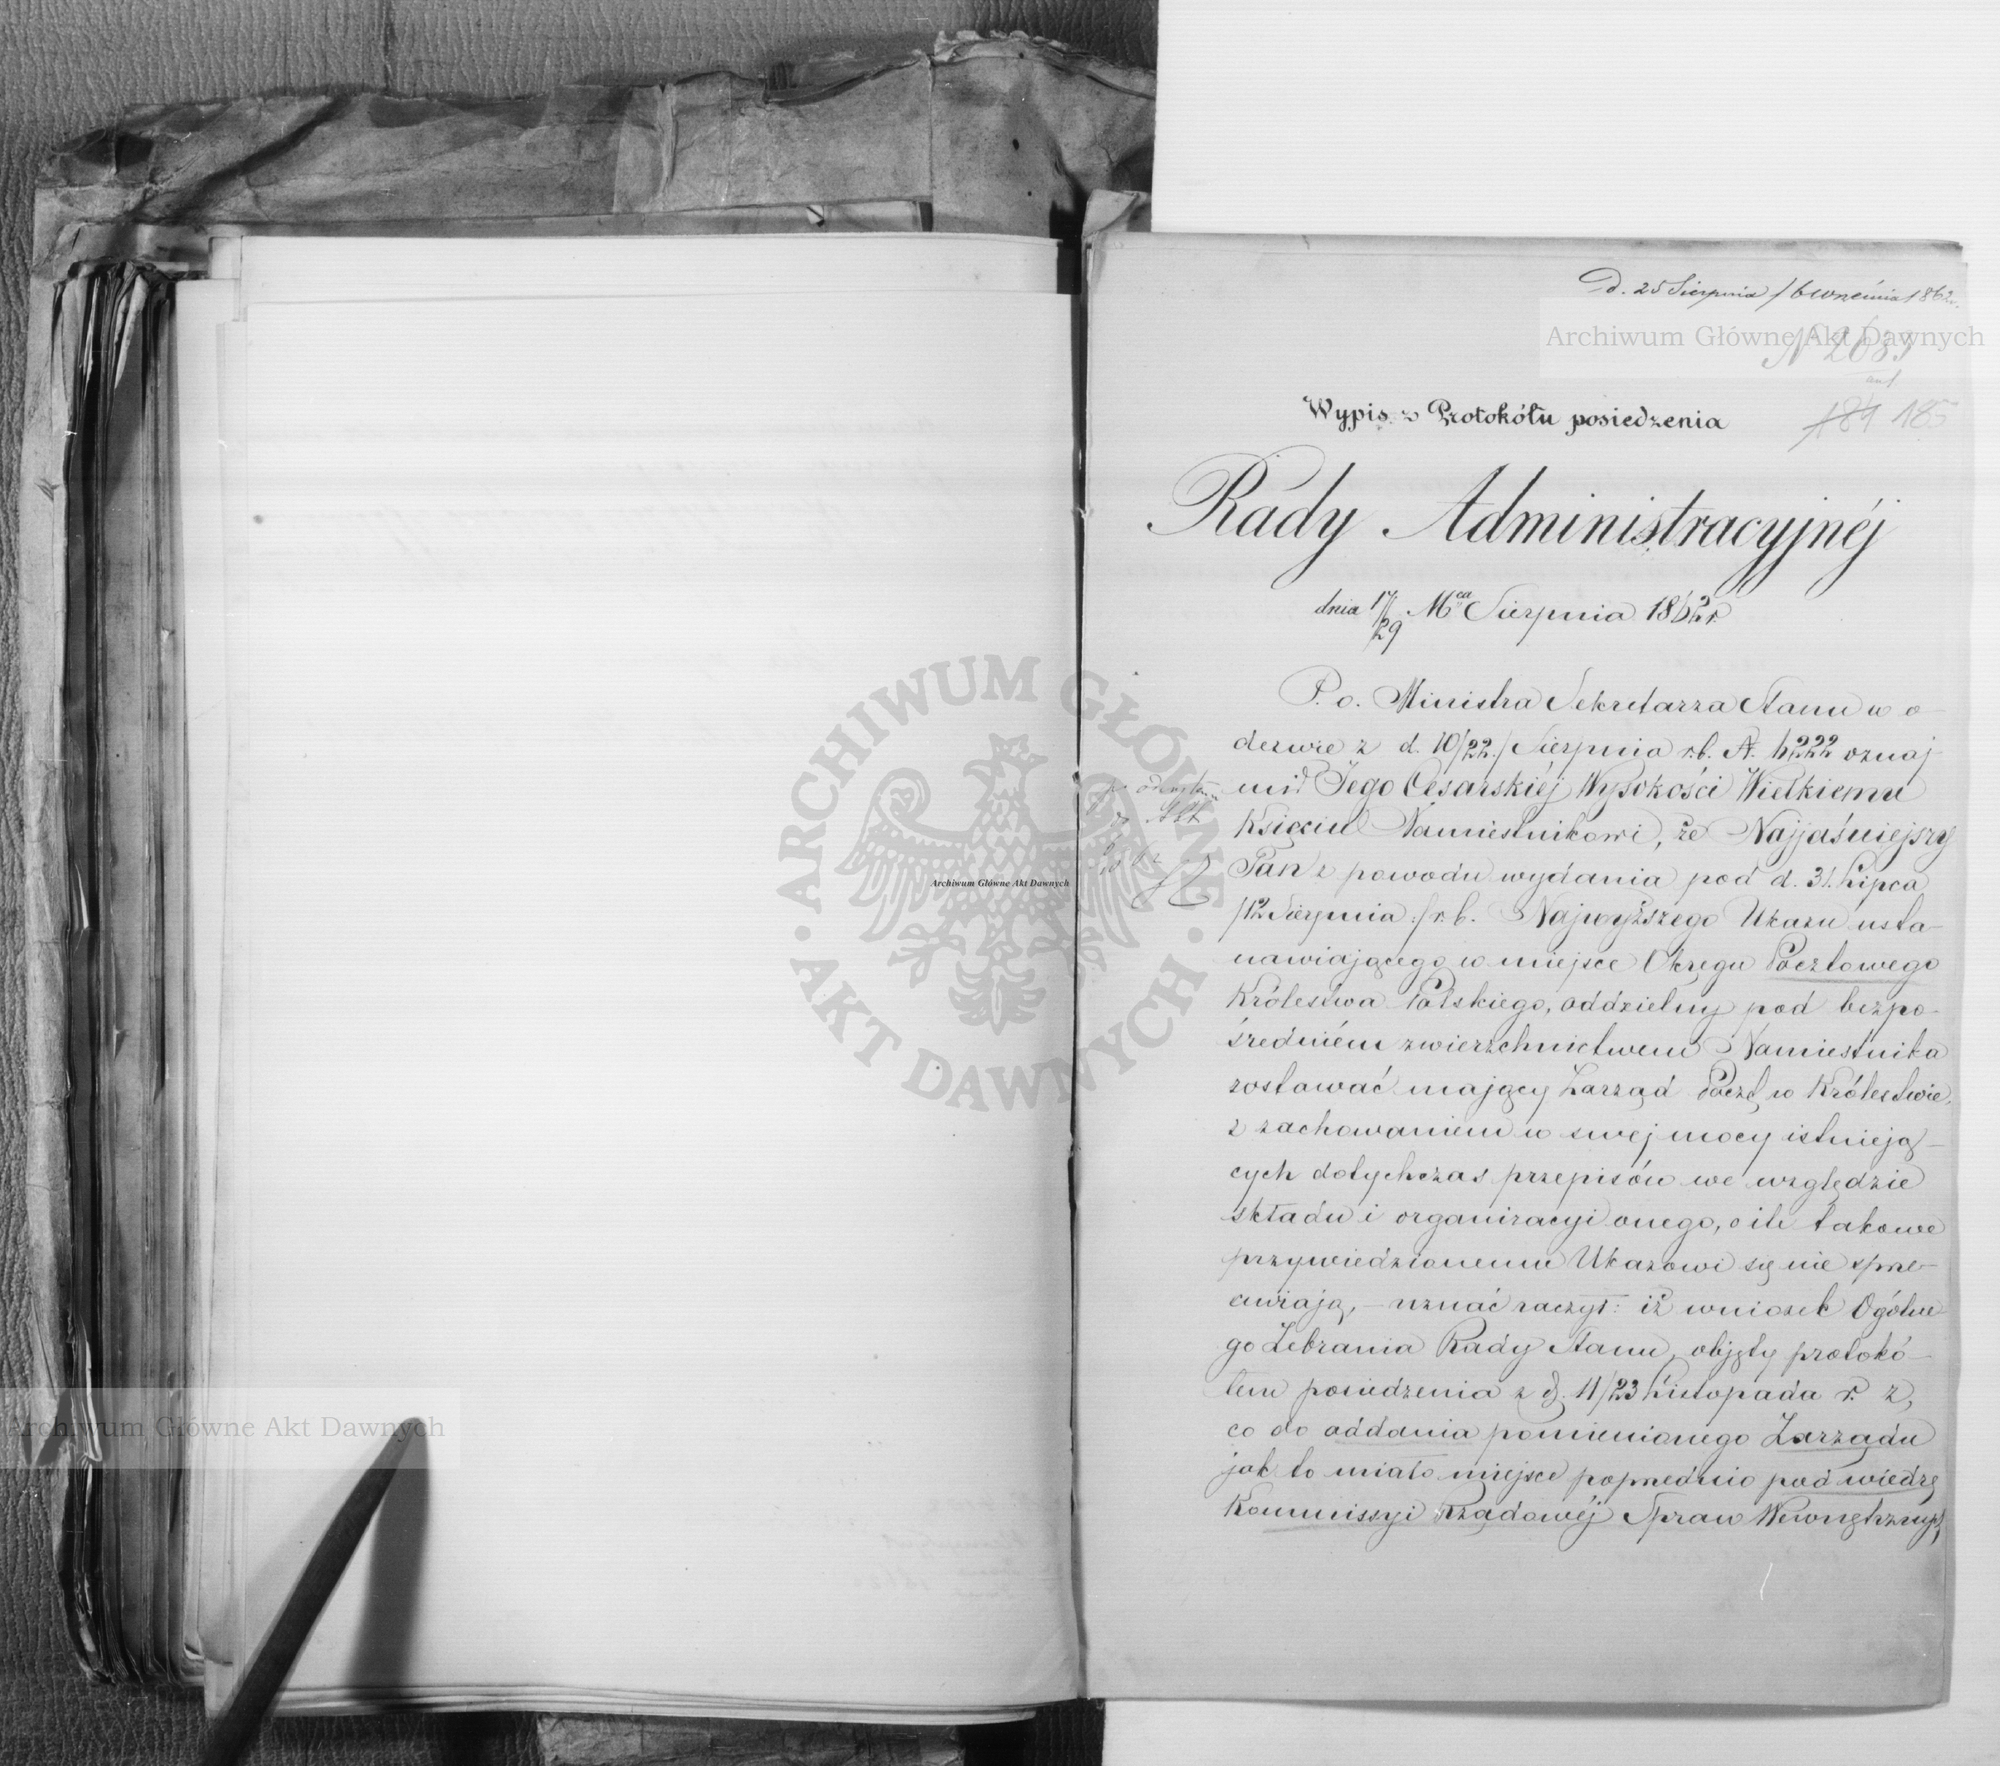 D. 25 Sierpnia / 6 Września 1862 r.
N 2689
184 185
Wypis z Protokółu posiedzenia
Rady Administracyjnéj
dnia 17/29 Mca Sierpnia 1862 r.
P. o. Ministra Sekretarza Stanu w o-
dezwie z d. 10/22 / Sierpnia r. b. N. 4222 oznaj-
mił Jego Cesarskiéj Wysokości Wielkiemu
Księciu Namiestnikowi, że Najjaśniejszy
Pan z powodu wydania pod d. 31. Lipca
/12 Sierpnia :/ r. b. Najwyższego Ukazu usta-
nawiającego w miejsce Okręgu Pocztowego
Królestwa Polskiego, oddzielny pod bezpo-
średniém zwierzchnictwem Namiestnika
zostawać mający Zarząd Poczt w Królestwie,
z zachowaniem w swej mocy istnieją-
cych dotychczas przepisów we względzie
składu i organizacyi onego, o ile takowe
przywiedzionemu Ukazowi się nie sprze-
ciwiają, – uznać raczył: iż wniosek Ogólne-
go Zebrania Rady Stanu, objęty protokó-
łem posiedzenia z d. 11/23 Listopada r. z,
co do oddania pomienionego Zarządu
jak to miało miejsce poprzednio pod wiedzę
Kommissyi Rządowéj Spraw Wewnętrznych,
do Akt
Archiwum Główne Akt Dawnych
Archiwum Główne Akt Dawnych
Archiwum Główne Akt Dawnych
ARCHIWUM GŁÓWNE
AKT DAWNYCH